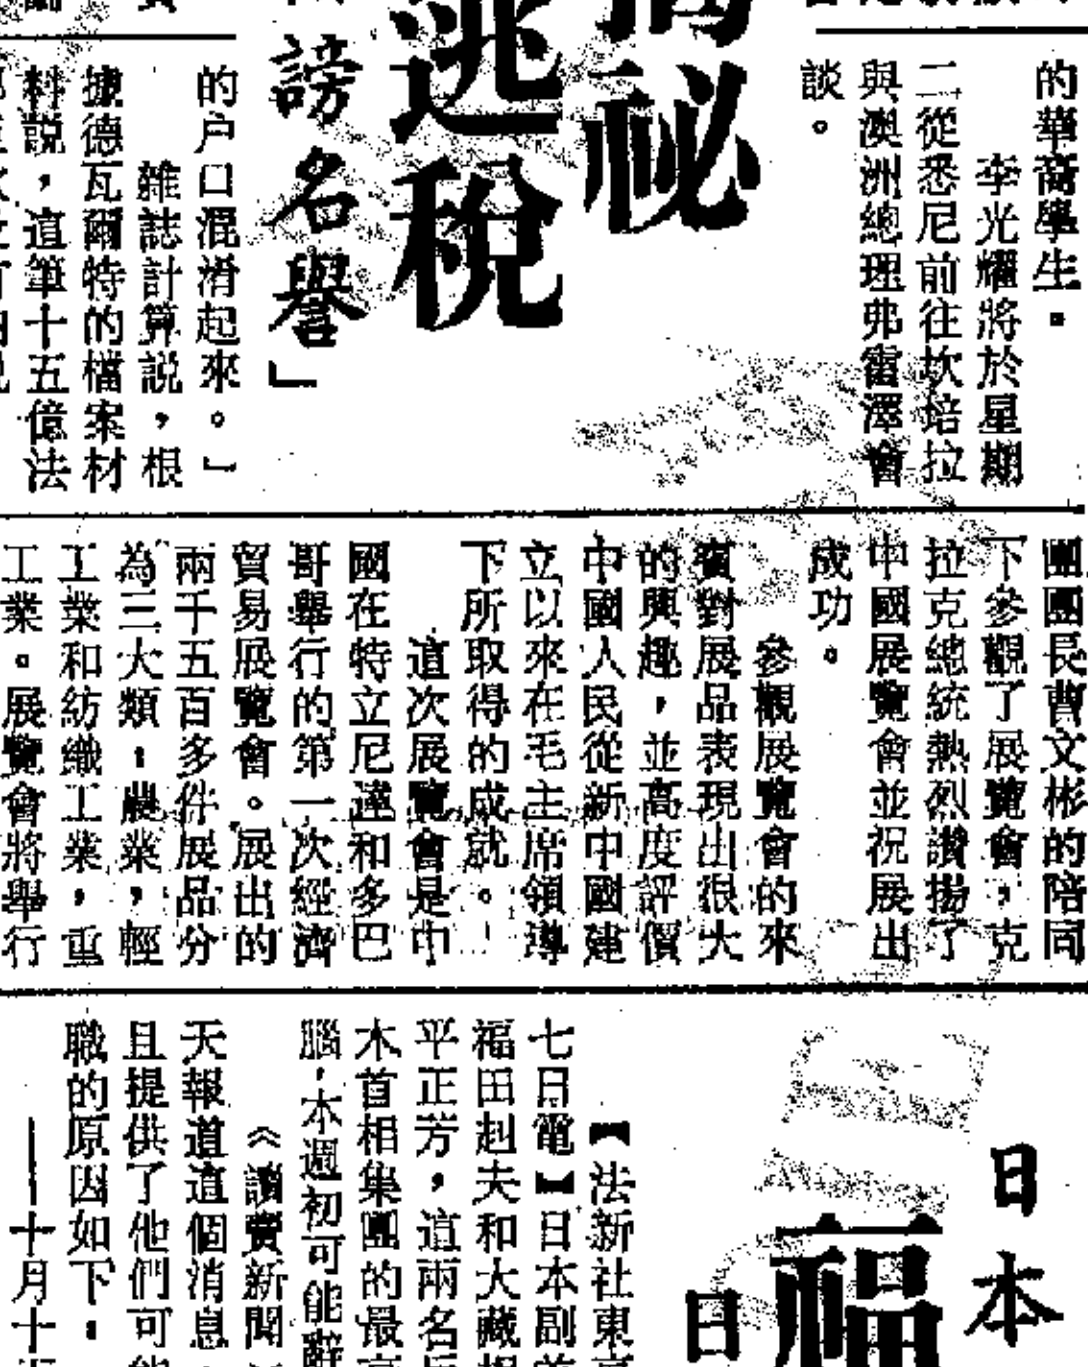 的華商學生。
李光耀將於星期
二從悉尼前往坎培拉
與澳洲總理弗雷澤會
談。
秘
逃稅
謗名譽」
的户口混淆起來。」
雜誌計算説,根
據德瓦爾特的檔案材
料説,這筆十五億法
團團長曹文彬的陪同
下參觀了展覽會,克
拉克總統熱烈讚揚了
中國展覽會並祝展出
成功。
參觀展覽會的來
賓對展品表現出很大
的興趣,並高度評價
中國人民從新中國建
立以來在毛主席領導
下所取得的成就。
這次展覽會是中
國在特立尼達和多巴
哥舉行的第一次經濟
貿易展覽會。展出的
兩千五百多件展品分
為三大類:農業,輕
工業和紡織工業,重
工業。展覽會將舉行
日本
福
日
【法新社東
七日電】日本副
福田赳夫和大藏相
平正芳,這兩名
木首相集團的最
腦,本週初可能辭
《讀賣新聞
天報道這個消息,
且提供了他們可能
職的原因如下:
——十月十